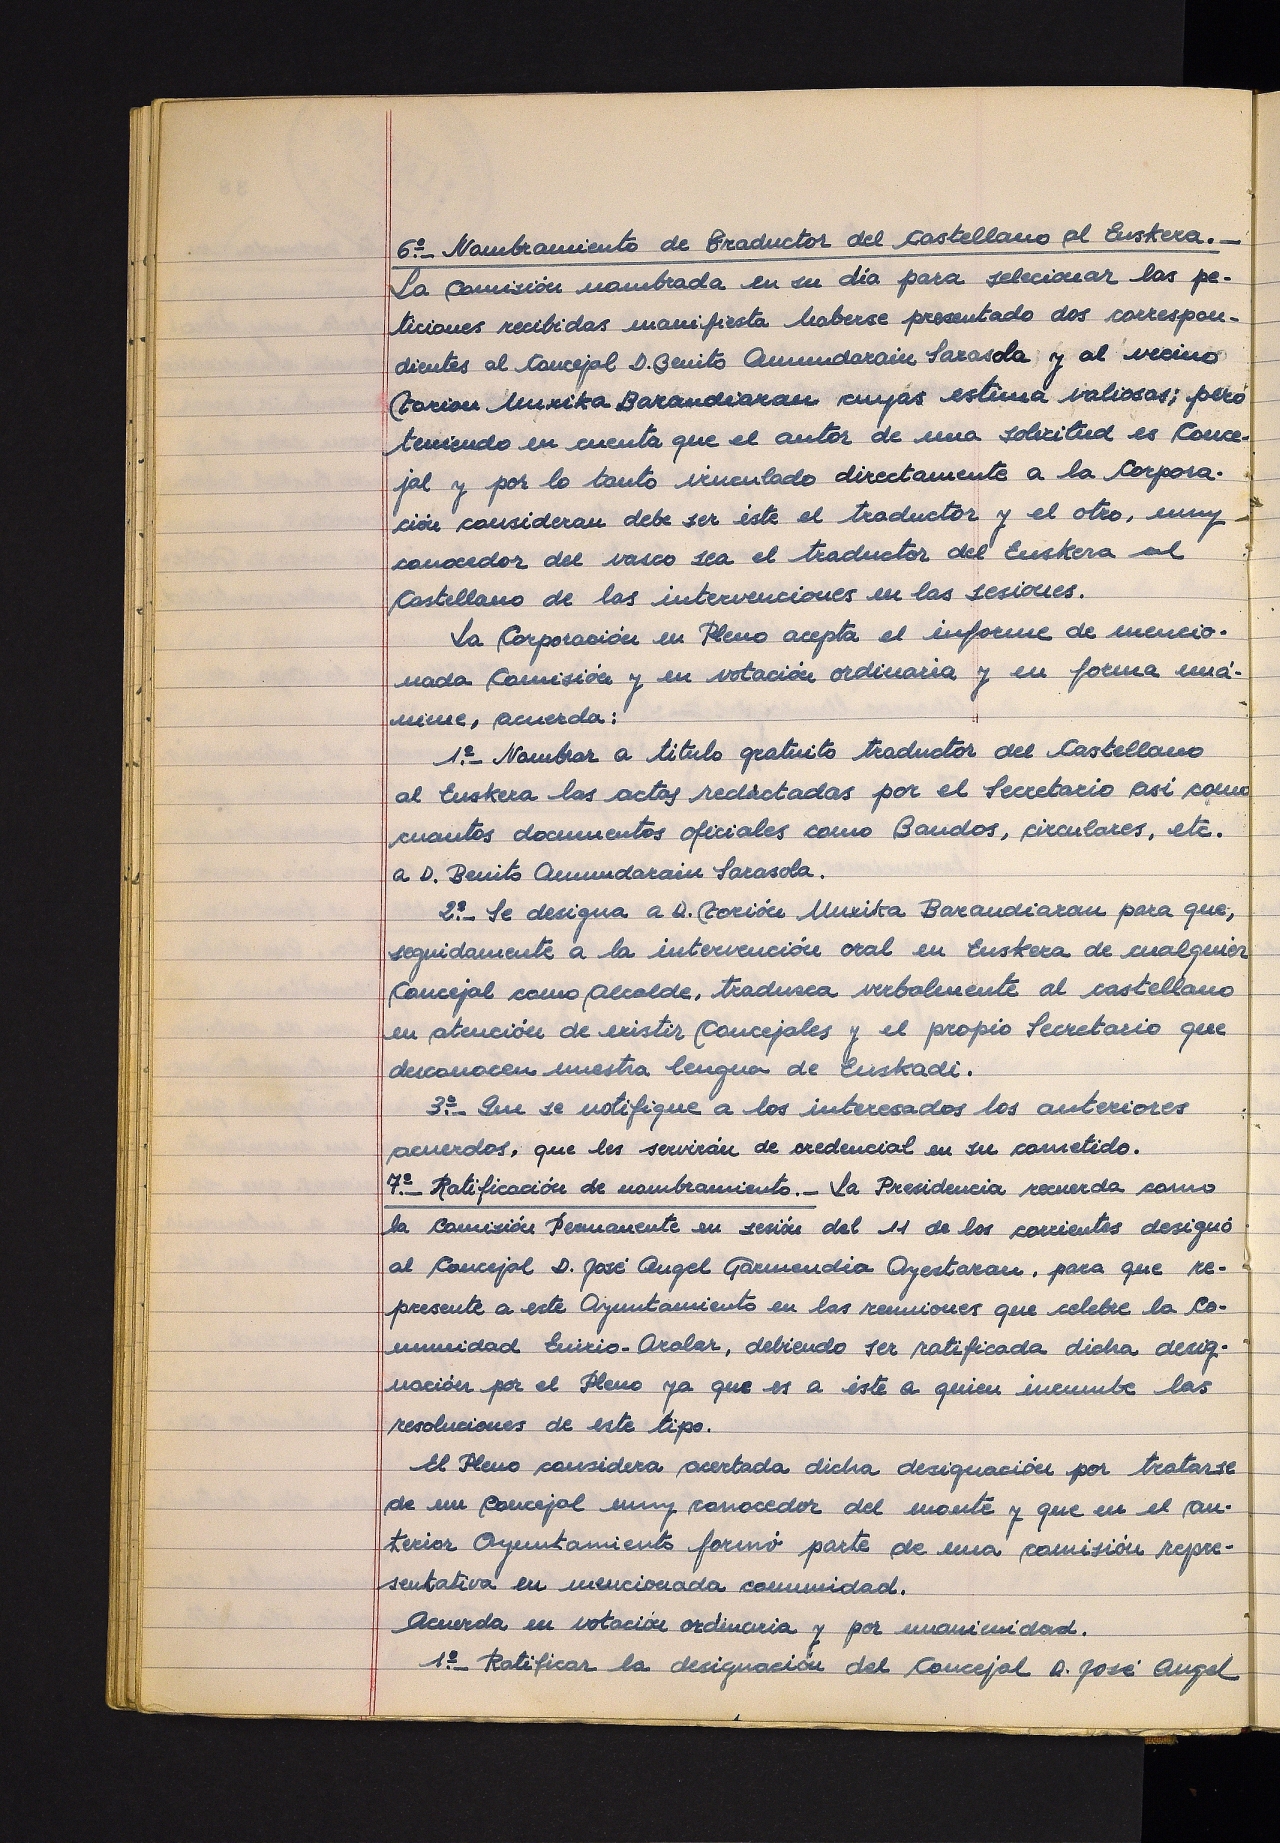 6º.- Nombramiento de Traductor del Castellano al Euskera.-
La Comisión nombrada en su día para selecionar las pe-
ticiones recibidas manifiesta haberse presentado dos correspon-
dientes al Concejal D. Benito Amundarain Sarasola y al vecino
Zorion Muxika Barandiaran cuyas estima valiosas; pero
teniendo en cuenta que el autor de una solicitud es Conce-
jal y por lo tanto vinculado directamente a la Corpora-
ción consideran debe ser éste el traductor y el otro, muy
conocedor del vasco sea el traductor del Euskera al
Castellano de las intervenciones en las sesiones.
La Corporación en Pleno acepta el informe de mencio-
nada Comisión y en votación ordinaria y en forma uná-
nime, acuerda:
1º.- Nombrar a titulo gratuito traductor del Castellano
al Euskera las actas redactadas por el Secretario así como
cuantos documentos oficiales como Bandos, circulares, etc.
a D. Benito Amundarain Sarasola.
2º.- Se designa a D. Zorión Muxika Barandiaran para que,
seguidamente a la intervención oral en Euskera de cualquier
Concejal como Alcalde, traduzca verbalmente al castellano
en atención de existir Concejales y el propio Secretario que
desconocen nuestra lengua de Euskadi.
3º.- Que se notifique a los interesados los anteriores
acuerdos, que les servirán de credencial en su cometido.
7º.- Ratificación de nombramiento.- La Presidencia recuerda como
la Comisión Permanente en sesión del 11 de los corrientes designó
al Concejal D. José Angel Garmendia Ayestaran, para que re-
presente a este Ayuntamiento en las reuniones que celebre la Co-
munidad Enirio-Aralar, debiendo ser ratificada dicha desig-
nación por el Pleno ya que es a éste a quien incumbe las
resoluciones de este tipo.
El Pleno considera acertada dicha designación por tratarse
de un Concejal muy conocedor del monte y que en el an-
terior Ayuntamiento formó parte de una comisión repre-
sentativa en mencionada comunidad.
Acuerda en votación ordinaria y por unanimidad.
1º.- Ratificar la designación del Concejal D. José Angel